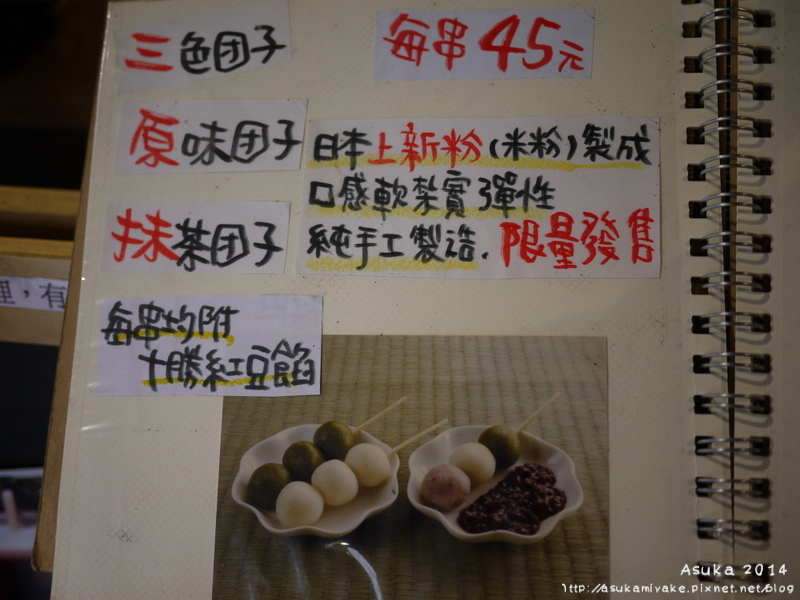 Asuka 2014
三色団子
每串45元
原味団子
日本上新粉(米粉)製成
口感軟紮實彈性
抹茶団子
純手工製造.限量發售
裡，有
每串均附
十勝紅豆餡
Asuka 2014
http://asukamiyake.pixnet.net/blog